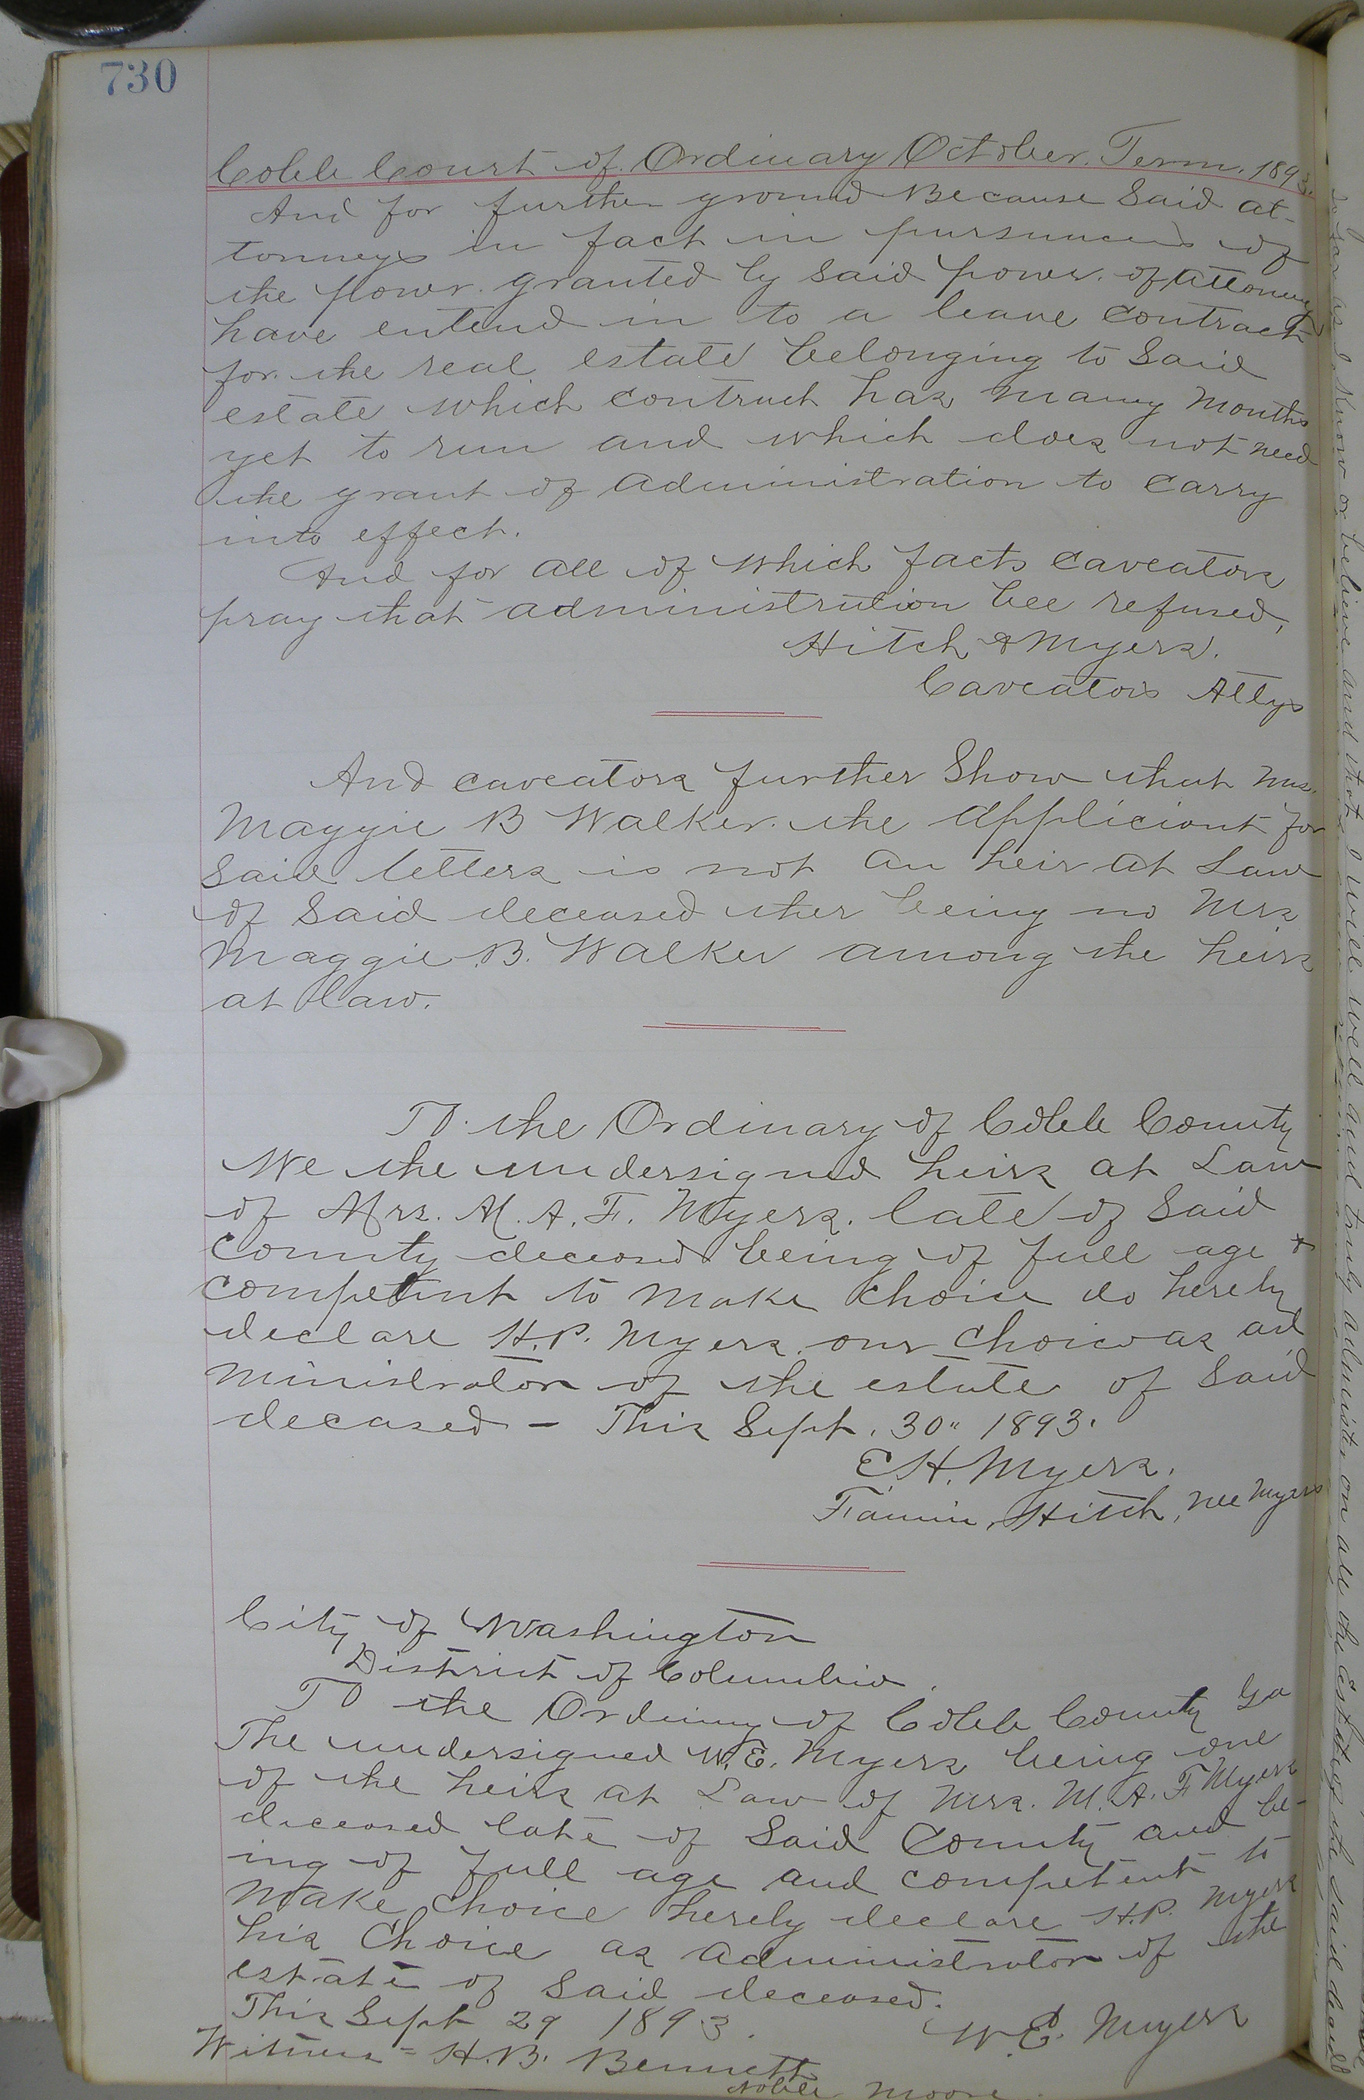 730
Cobb Court of Ordinary October Term. 1893.
And for further ground Because Said at-
torneys in fact in pursuance of
the power granted by said power of attorney
have entend in to a leave contract
for the real estate belonging to Said
estate which contract has many months
yet to run and which does not need
the grant of administration to carry
into effect.
And for all of which facts caveators
pray that administration bee refused,
Hitch & Myers.
Caveators Attys
And caveators further Show that Mrs.
Maggie B Walker the appliciant for
said letters is not an heir at Law
of Said deceased ther being no Mrs
Maggie B. Walker among the heirs
at law.
To the Ordinary of Cobb County
We the undersigned heirs at Law
of Mrs. M. A. F. Myers. late of Said
County deceased being of full age &
competent to make choice do hereby
declare H.P. Myers our choice as ad
ministrator of the estate of Said
decased - This Sept. 30" 1893.
E.H. Myers.
Fannie Hitch, nee Myers
City of Washington
District of Columbia.
To the Ordinary of Cobb County Ga
The undersigned W.E. Myers being one
of the heirs at Law of Mrs. M. A. F Myers
deceased late of Said County and be-
ing of full age and competent to
make choice hereby declare H.P. Myers
his Choice as administrator of the
estate of said deceased.
This Sept 29 1893.
W.E. Myers
Witness - H.B. Bennett
Noble Moore
so far as I know or believe and that I will well and truly administer on all the estate of the said deceased